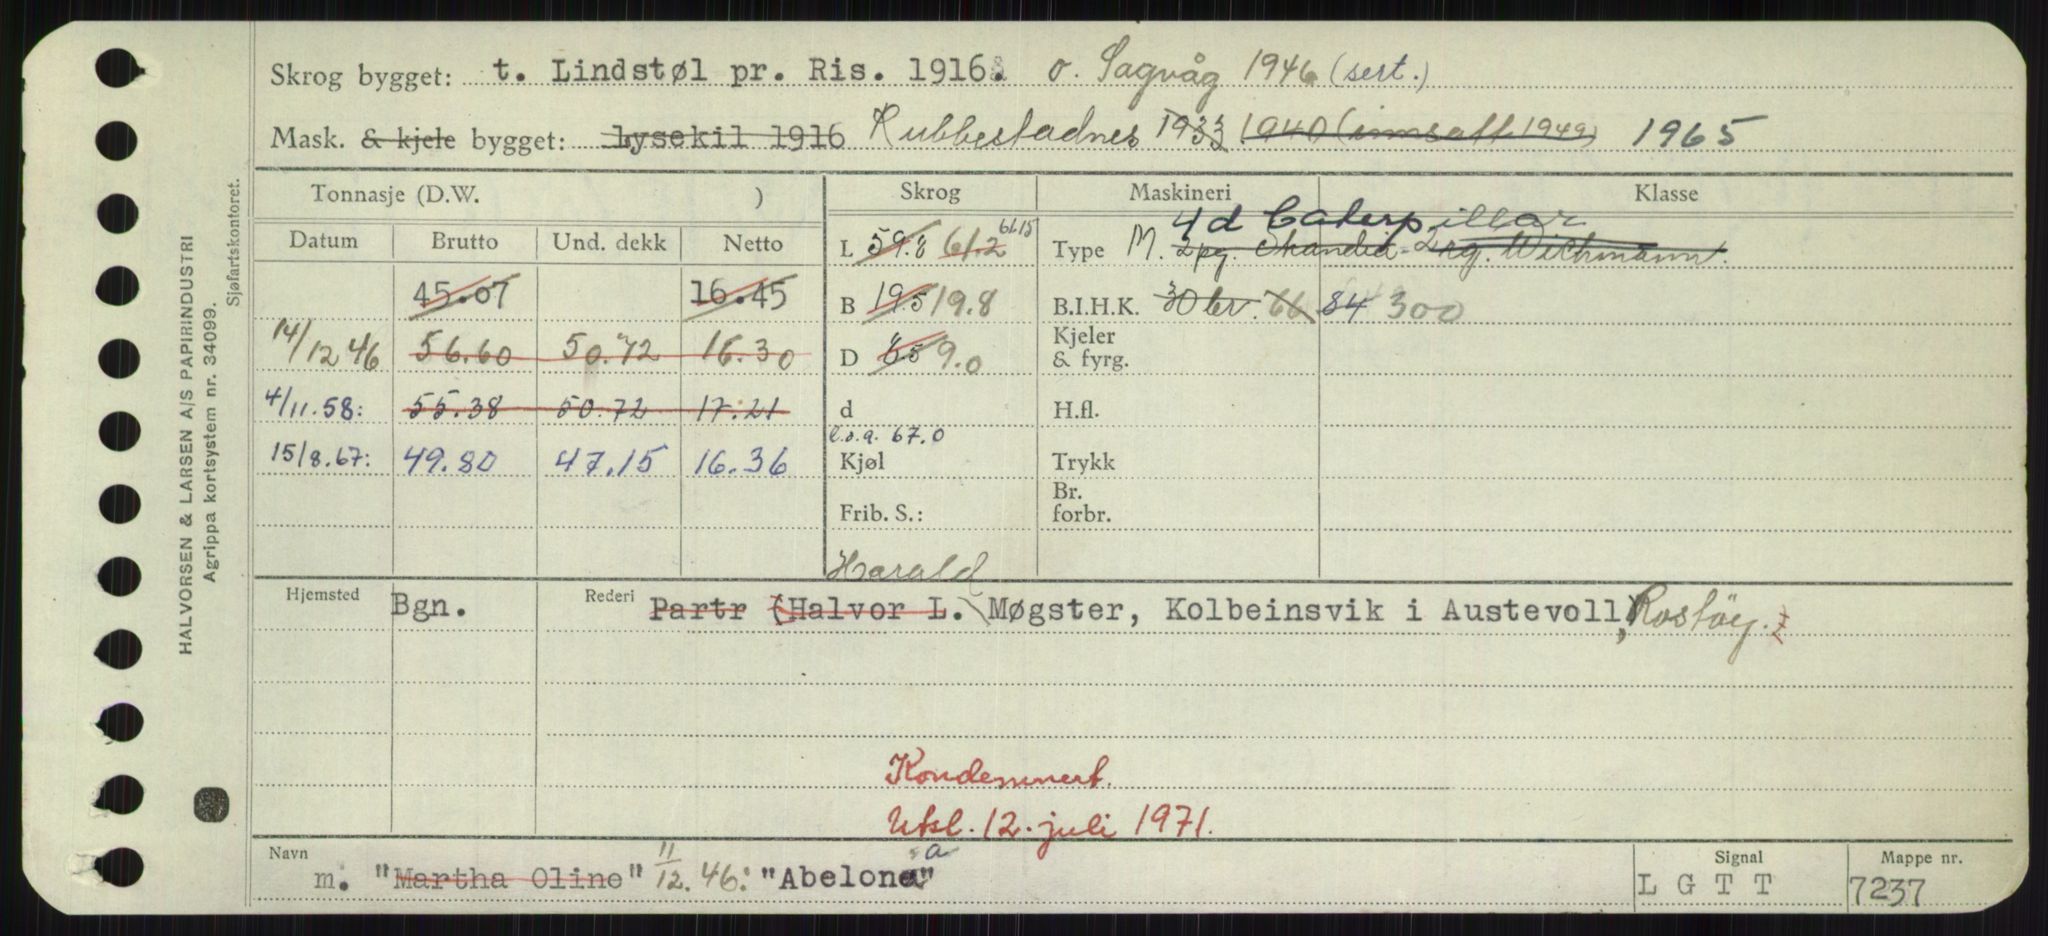 Skrog bygget: t. Lindstøl pr. Ris. 1916. o. Sagvåg 1946 (sert.)
Mask. & kjele bygget: Lysekil 1916 Rubbestadnes 1933 1940 (innsatt 1949) 1965
Tonnasje (D.W. ) Skrog Maskineri Klasse
Datum Brutto Und. dekk Netto
L 59.8 61.2 61.15
Type M. 2pg. Skandia 2 rg. Wichmann. 4 d Caterpillar
45.07 16.45
B 19.5 19.8
B.I.H.K. 30 br. 66 84 300
14/12 46 56.60 50.72 16.30
D 8.5 9.0
Kjeler & fyrg.
4/11.58: 55.38 50.72 17.21
d
H.fl.
l.o.a. 67.0
15/8.67: 49.80 47.15 16.36
Kjøl
Trykk
Frib. S.:
Br. forbr.
Harald
Hjemsted Bgn. Rederi Partr (Halvor L. Møgster, Kolbeinsvik i Austevoll), Rostöy.
Kondemnert.
Utsl. 12. juli 1971.
Navn m. "Martha Oline" 11/12.46: "Abelona" a
Signal LGTT
Mappe nr. 7237
HALVORSEN & LARSEN A/S PAPIRINDUSTRI
Agrippa kortsystem nr. 34099.
Sjøfartskontoret.